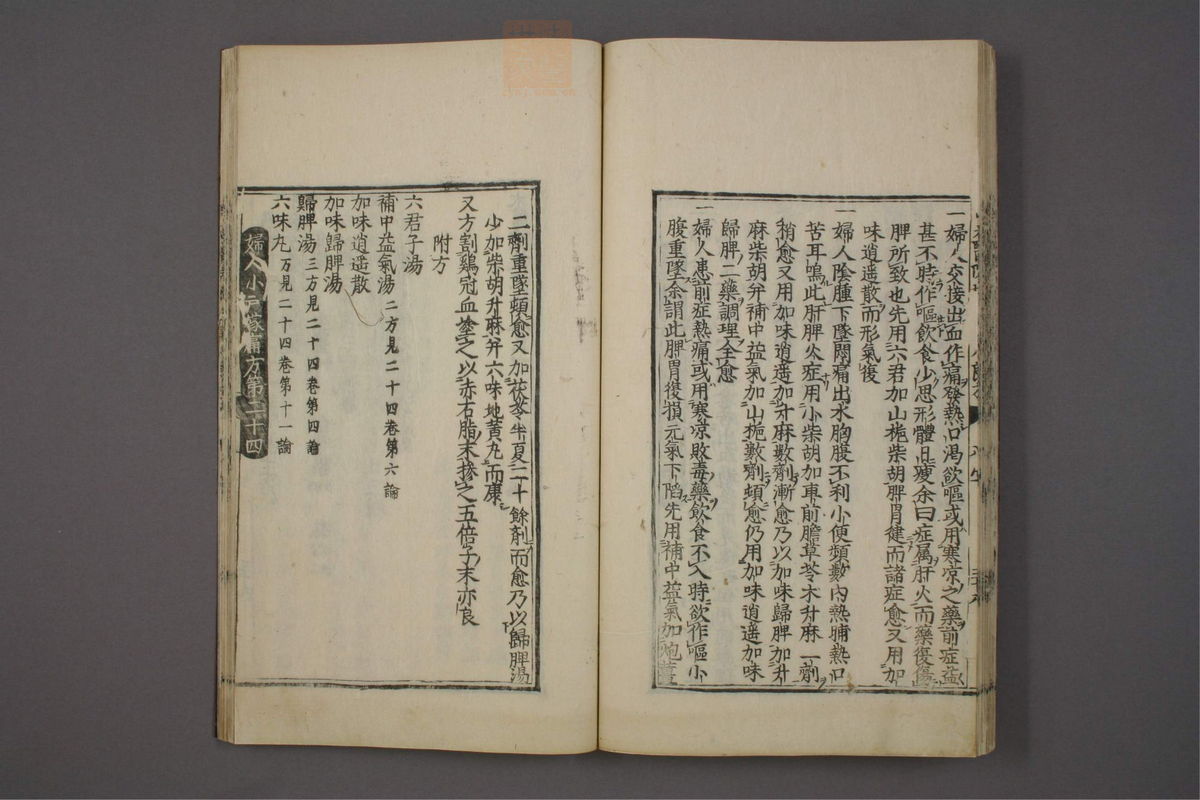 一婦人交接出血作痛發熱口渴欲嘔或用寒凉之藥前症益
甚不時作嘔飲食少思形體日瘦余曰症属肝火而藥復傷
脾所致也先用六君加山梔柴胡脾胃健而諸症愈又用加
味逍遥散而形氣復
一婦人陰腫下墜悶痛出水胸腹不利小便頻數內熱晡熱口
苦耳鳴此肝脾火症用小柴胡加車前膽草苓木升麻一劑
稍愈又用加味逍遥加升麻數劑漸愈乃以加味歸脾加升
麻柴胡并補中益氣加山梔數劑頓愈仍用加味逍遥加味
歸脾二藥調理全愈
一婦人患前症熱痛或用寒凉敗毒藥飲食不入時欲作嘔小
腹重墜余謂此脾胃復損元氣下陷先用補中益氣加炮薑
二劑重墜頓愈又加茯苓半夏二十餘剤而愈乃以歸脾湯
少加柴胡升麻并六味地黄丸而康
又方割鷄冠血塗之以赤石脂末摻之五倍子末亦良
附方
六君子湯
補中益氣湯二方見二十四卷第六論
加味逍遥散
加味歸脾湯
歸脾湯三方見二十四卷第四論
六味丸方見二十四卷第十一論
婦人小戶嫁痛方第二十四